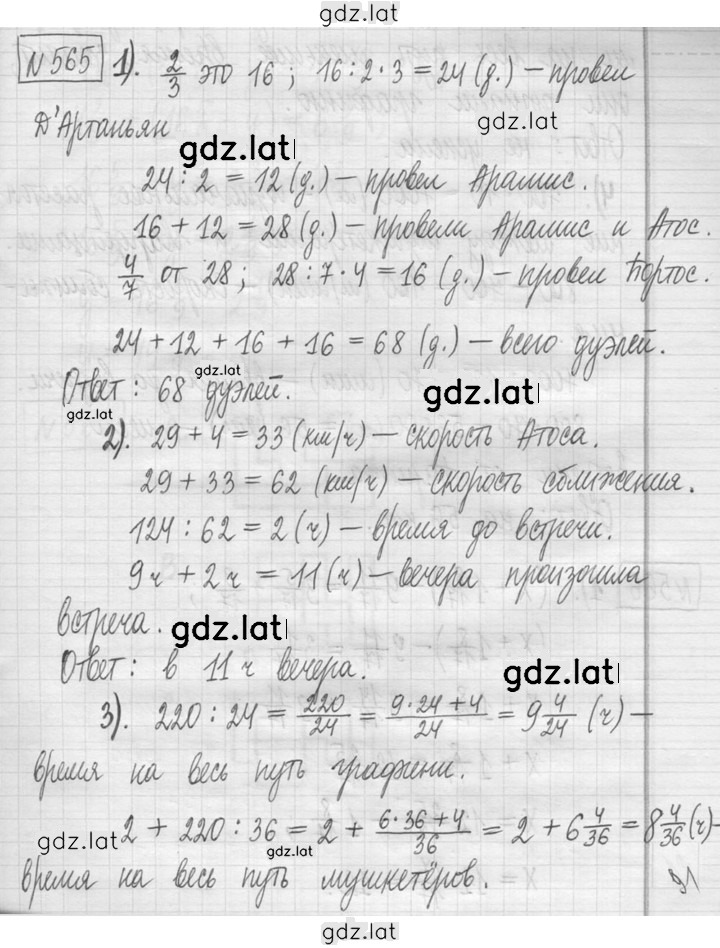 gdz.lat
№565 1). 2/3 это 16; 16:2·3=24(д.) – провел
Д'Артаньян
gdz.lat
gdz.lat
24:2=12(д.) – провел Арамис.
16+12=28(д.) – провели Арамис и Атос.
4/7 от 28; 28:7·4=16(д.) – провел Портос.
24+12+16+16=68(д.) – всего дуэлей.
Ответ: 68 дуэлей.
gdz.lat
gdz.lat
gdz.lat
2). 29+4=33(км/ч) – скорость Атоса.
29+33=62(км/ч) – скорость сближения.
124:62=2(ч) – время до встречи.
9ч+2ч=11(ч) – вечера произошла
встреча.
gdz.lat
Ответ: в 11ч вечера.
gdz.lat
3). 220:24=220/24=(9·24+4)/24=9 4/24 (ч) –
время на весь путь графини.
2+220:36=2+(6·36+4)/36=2+6 4/36=8 4/36(ч) –
gdz.lat
gdz.lat
время на весь путь мушкетёров.
91
gdz.lat